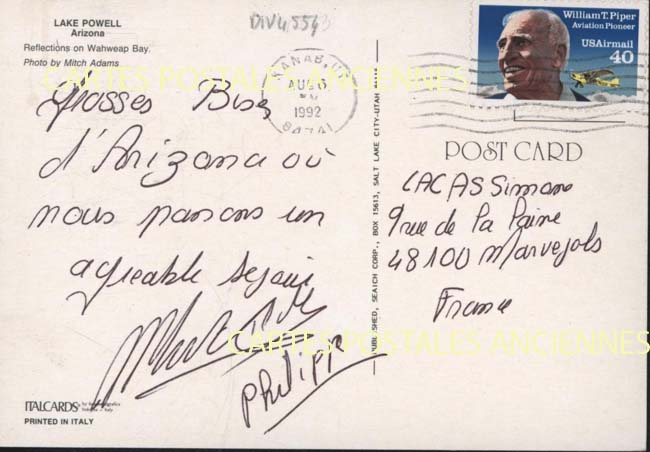 LAKE POWELL
Arizona
Reflections on Wahweap Bay.
Photo by Mitch Adams
DIV45543
KANAB, UT
AUG 6
1992
84741
William T. Piper
Aviation Pioneer
USAirmail
40
CARTES POSTALES ANCIENNES
Grosses Bises
d'Arizona où
nous passons un
agréable séjour
Philippe
PUBLISHED, SEAICH CORP., BOX 15613, SALT LAKE CITY-UTAH
POST CARD
LACAS Simone
9 rue de la Paine
48100 Marvejols
France
CARTES POSTALES ANCIENNES
ITALCARDS
PRINTED IN ITALY